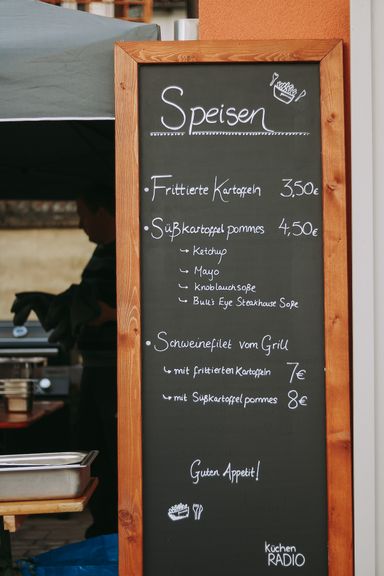 Speisen
• Frittierte Kartoffeln 3,50€
• Süßkartoffelpommes 4,50€
↳ Ketchup
↳ Mayo
↳ Knoblauchsoße
↳ Bull's Eye Steakhouse Soße
• Schweinefilet vom Grill
↳ mit frittierten Kartoffeln 7€
↳ mit Süßkartoffelpommes 8€
Guten Appetit!
küchen
RADIO